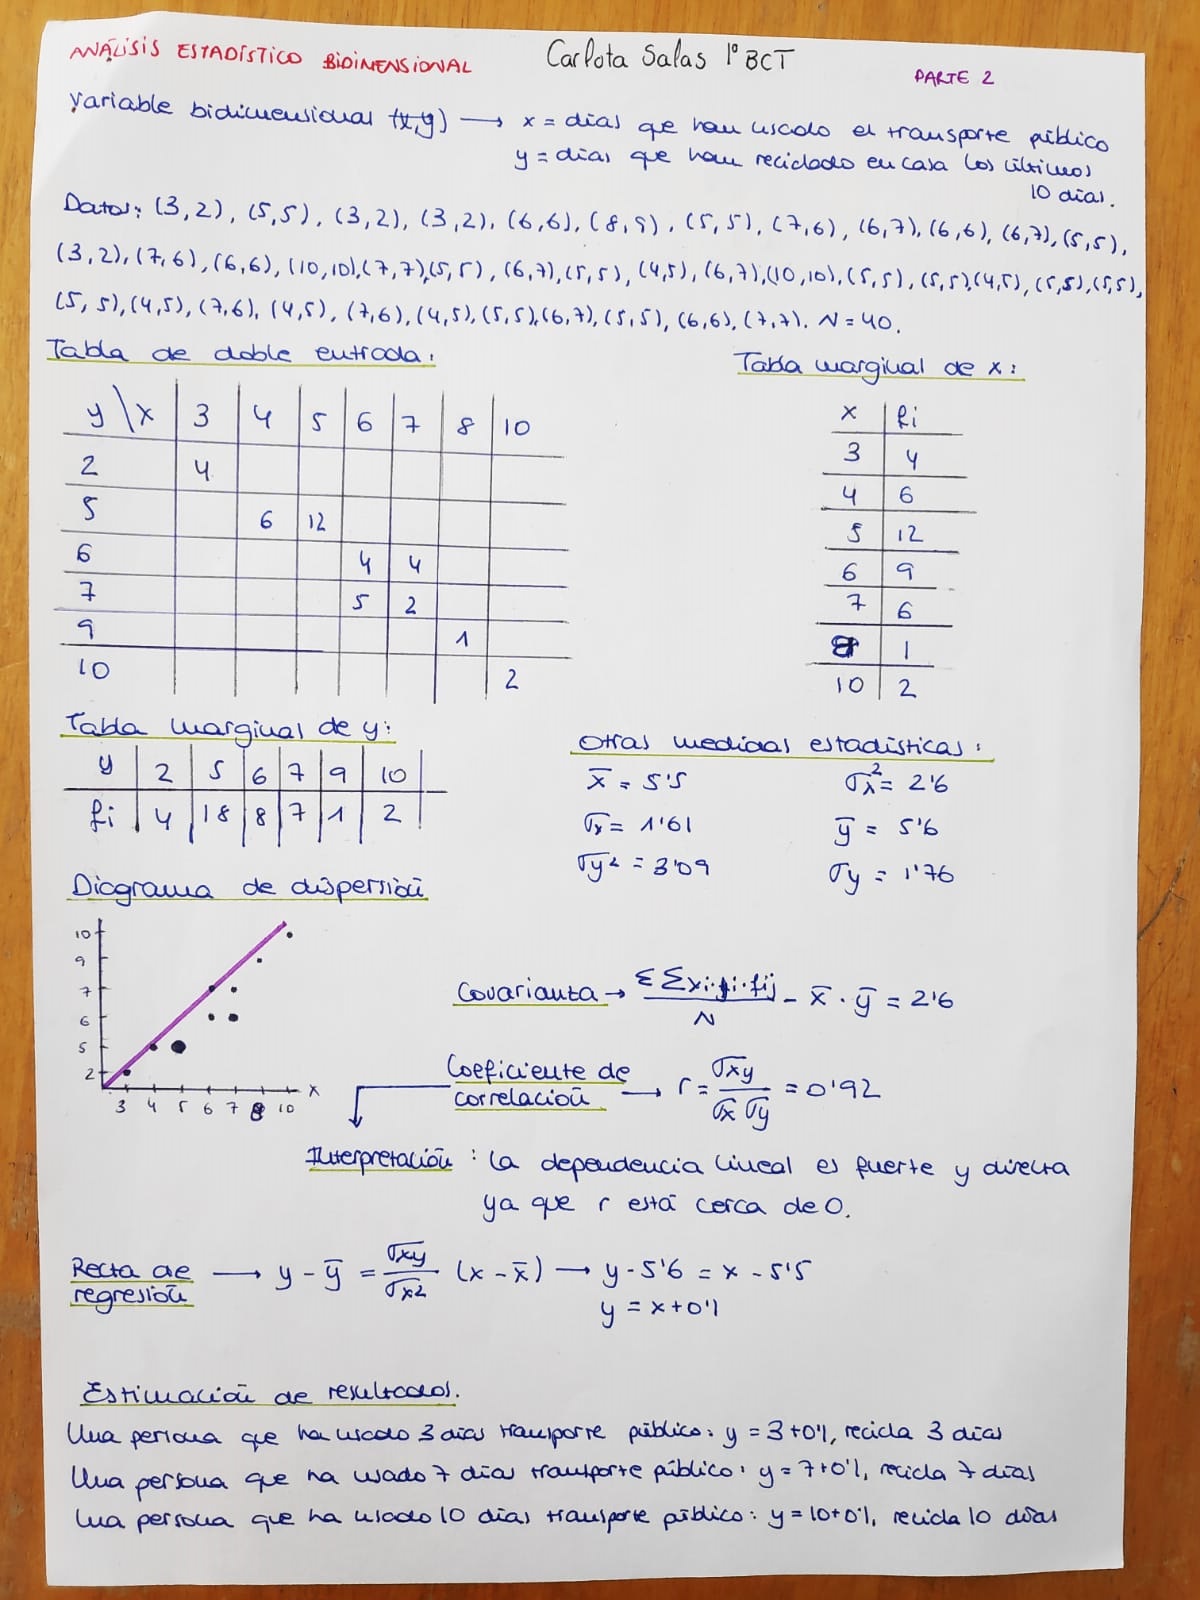 ANÁLISIS ESTADÍSTICO BIDIMENSIONAL Carlota Salas 1º BCT PARTE 2
Variable bidimensional (x,y) → x = días que han usado el transporte público
y = días que han reciclado en casa los últimos
10 días.
Datos: (3,2), (5,5), (3,2), (3,2), (6,6), (8,9), (5,5), (7,6), (6,7), (6,6), (6,7), (5,5),
(3,2), (7,6), (6,6), (10,10), (7,7), (5,5), (6,7), (5,5), (4,5), (6,7), (10,10), (5,5), (5,5), (4,5), (5,5), (5,5),
(5,5), (4,5), (7,6), (4,5), (7,6), (4,5), (5,5), (6,7), (5,5), (6,6), (7,7). N=40.
Tabla de doble entrada: Tabla marginal de x:
y\x 3 4 5 6 7 8 10
2 4
5 6 12
6 4 4
7 5 2
9 1
10 2
x fi
3 4
4 6
5 12
6 9
7 6
8 1
10 2
Tabla marginal de y:
y 2 5 6 7 9 10
fi 4 18 8 7 1 2
Otras medidas estadísticas:
x̄ = 5'5 σx² = 2'6
σx = 1'61 ȳ = 5'6
σy² = 3'09 σy = 1'76
Diagrama de dispersión
10
9
7
6
5
2
3 4 5 6 7 8 10 x
Covarianza → ΣΣxi·yi·fij / N - x̄ · ȳ = 2'6
Coeficiente de correlación → r = σxy / σx σy = 0'92
Interpretación: la dependencia lineal es fuerte y directa
ya que r está cerca de 0.
Recta de regresión → y - ȳ = σxy / σx² (x - x̄) → y - 5'6 = x - 5'5
y = x + 0'1
Estimación de resultados.
Una persona que ha usado 3 días transporte público: y = 3+0'1, recicla 3 días
Una persona que ha usado 7 días transporte público: y = 7+0'1, recicla 7 días
Una persona que ha usado 10 días transporte público: y = 10+0'1, recicla 10 días